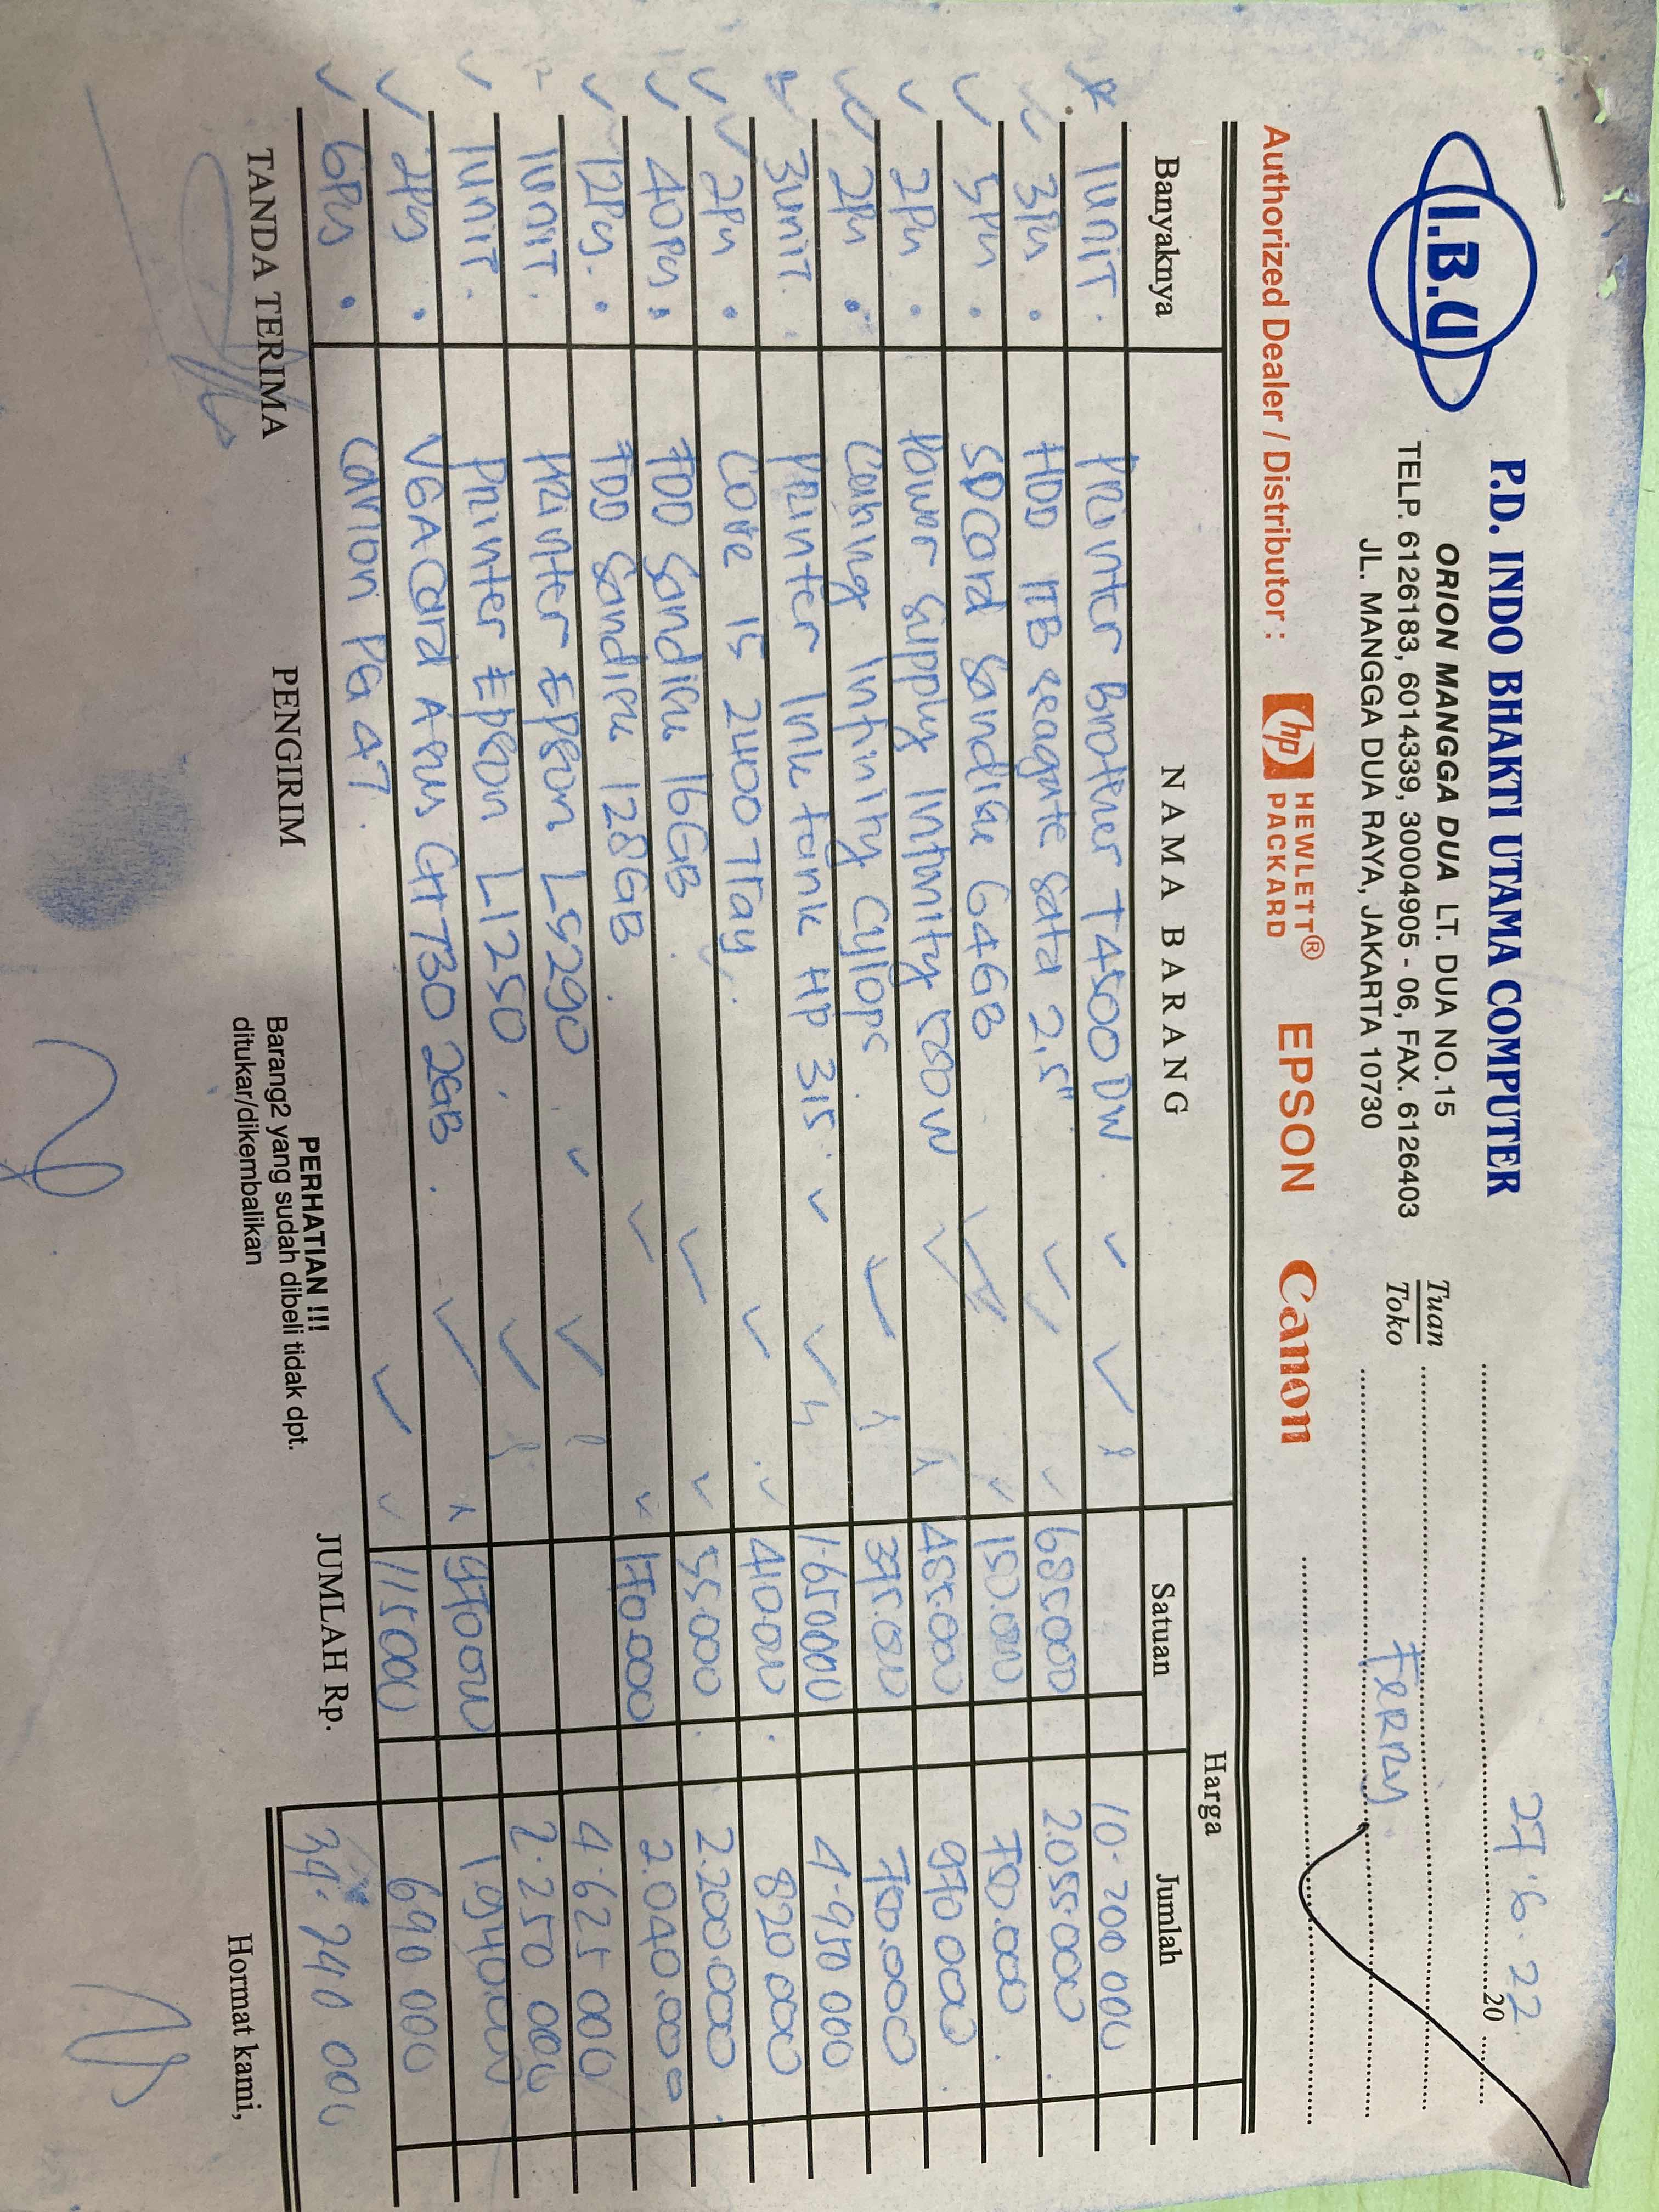 I.B.U
P.D. INDO BHAKTI UTAMA COMPUTER
ORION MANGGA DUA LT. DUA NO.15
TELP. 6126183, 6014339, 30004905 - 06, FAX. 6126403
JL. MANGGA DUA RAYA, JAKARTA 10730
27.6.22 20
Tuan
Toko
Ferry
Authorized Dealer / Distributor : hp HEWLETT® PACKARD EPSON Canon
Banyaknya NAMA BARANG Harga
Satuan Jumlah
1unit. Printer Brother T4500DW. 10.200 000
3Pcs HDD 1TB Seagate Sata 2,5" 685000 2.055.000
5Pcs SDCard Sandisk 64GB 150.000 750.000
2Pcs Power Supply Infinity 500W 485.000 970.000
2Pcs Infinity Cylops 375.000 750.000
3unit. Printer Ink tank HP 315. 1.650000 4.950 000
2Pcs Core i5 2400 Tray. 410.000 820 000
40Pcs. FDD Sandisk 16GB 55.000 2.200.000
12Pcs. FDD Sandisk 128GB. 170.000 2.040.000
1unit. Printer Epson L5290. 4.625 000
1unit. Printer Epson L1250. 2.250 000
2Pcs VGA Card Asus GT730 2GB. 970000 1.940.000
6Pcs Canon PG 47. 115000 690 000
TANDA TERIMA PENGIRIM JUMLAH Rp. 34.240 000
PERHATIAN !!!
Barang2 yang sudah dibeli tidak dpt.
ditukar/dikembalikan
Hormat kami,